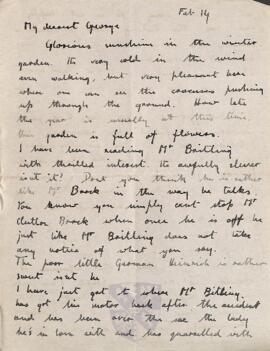 Feb 14
My dearest George
Glorious sunshine in the winter
garden. Its very cold in the wind
even walking, but very pleasant here
when one can see the crocuses pushing
up through the ground. How late
the year is usually at this time,
this garden is full of flowers.
I have been reading Mr Britling
with thrilled interest. Its awfully clever
isn't it? Don't you think he is rather
like Mr Brock in the way he talks
You know you simply cant stop Mr
Clutton Brock when once he is off he
just like Mr Britling does not take
any notice of what you say.
The poor little German Heinrich is rather
sweet isnt he
I have just got to where Mr Britling
has got his motor back after the accident
and has been over to see the lady
he's in love with and has quarrelled with